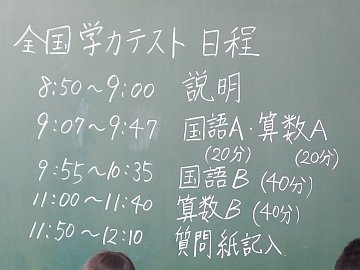 全国学力テスト 日程
8:50～9:00 説明
9:07～9:47 国語A・算数A
(20分) (20分)
9:55～10:35 国語B (40分)
11:00～11:40 算数B (40分)
11:50～12:10 質問紙記入